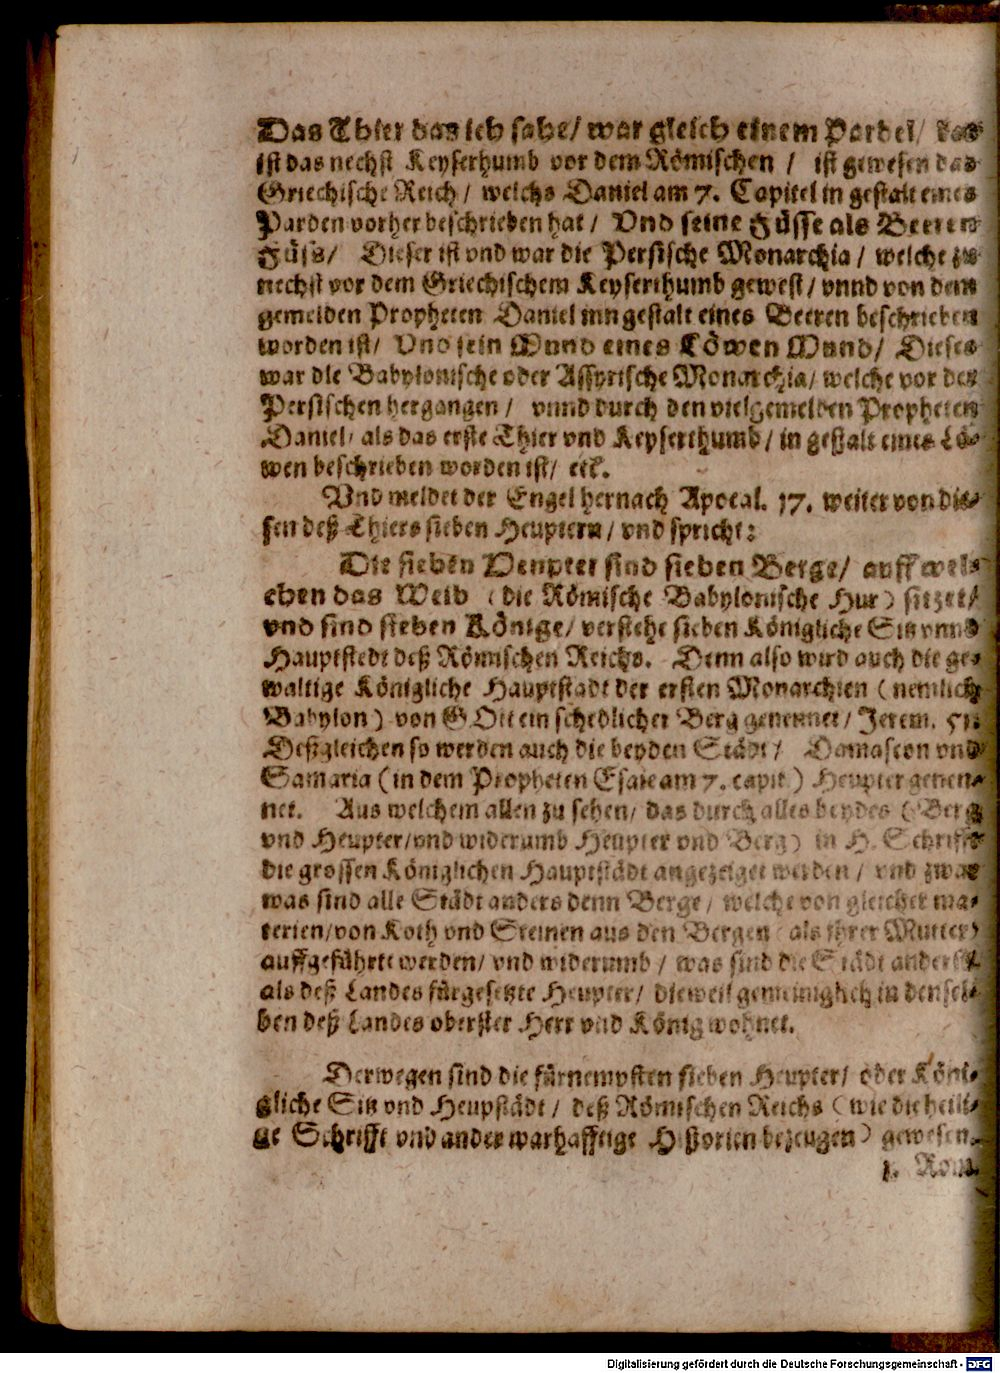 Das Thier das ich sahe/ war gleich einem Pardel/ das
ist das nechst Keyserthumb vor dem Römischen / ist gewesen das
Griechische Reich / welchs Daniel am 7. Capitel in gestalt eines
Parden vorher beschrieben hat / Vnd seine Füsse als Beeren
Füss/ Dieser ist vnd war die Persische Monarchia / welche zu
nechst vor dem Griechischem Keyserthumb gewest / vnnd von dem
gemelden Propheten Daniel inn gestalt eines Beeren beschrieben
worden ist/ Vnd sein Mund eines Löwen Mund/ Dieses
war die Babylonische oder Assyrische Monarchia/ welche vor der
Persischen hergangen / vnnd durch den vielgemelden Propheten
Daniel/ als das erste Thier vnd Keyserthumb/ in gestalt eines Lö-
wen beschrieben worden ist/ etc.
Vnd meldet der Engel hernach Apocal. 17. weiter von die-
sen deß Thiers sieben Heuptern/ vnd spricht:
Die sieben Heupter sind sieben Berge/ auff wel-
chen das Weib (die Römische Babylonische Hur) sitzet/
vnd sind sieben Könige/ verstehe sieben Königliche Sitz vnnd
Hauptstedt deß Römischen Reichs. Denn also wird auch die ge-
waltige Königliche Hauptstadt der ersten Monarchien (nemlich
Babylon) von GOtt ein schedlicher Berg genennet/ Jerem. 51.
Deßgleichen so werden auch die beyden Städt/ Damascon vnd
Samaria (in dem Propheten Esaie am 7. capit.) Heupter genen-
net. Aus welchem allen zu sehen/ das durch alles beydes (Berg
vnd Heupter/ vnd widerumb Heupter vnd Berg) in H. Schrifft
die grossen Königlichen Hauptstädt angezeiget werden/ vnd zwar
was sind alle Städt anders denn Berge/ welche von gleicher ma-
terien/ von Koth vnd Steinen aus den Bergen (als ihrer Mutter)
auffgeführt werden/ vnd widerumb/ was sind die Städt anders/
als deß Landes fürgesetzte Heupter/ dieweil gemeiniglich in densel-
ben deß Landes oberster Herr vnd König wohnet.
Derwegen sind die fürnempsten sieben Heupter/ oder Köni-
gliche Sitz vnd Heupstädt / deß Römischen Reichs (wie die heili-
ge Schrifft vnd ander warhafftige Historien bezeugen) gewesen.
1. Rom.
Digitalisierung gefördert durch die Deutsche Forschungsgemeinschaft - DFG